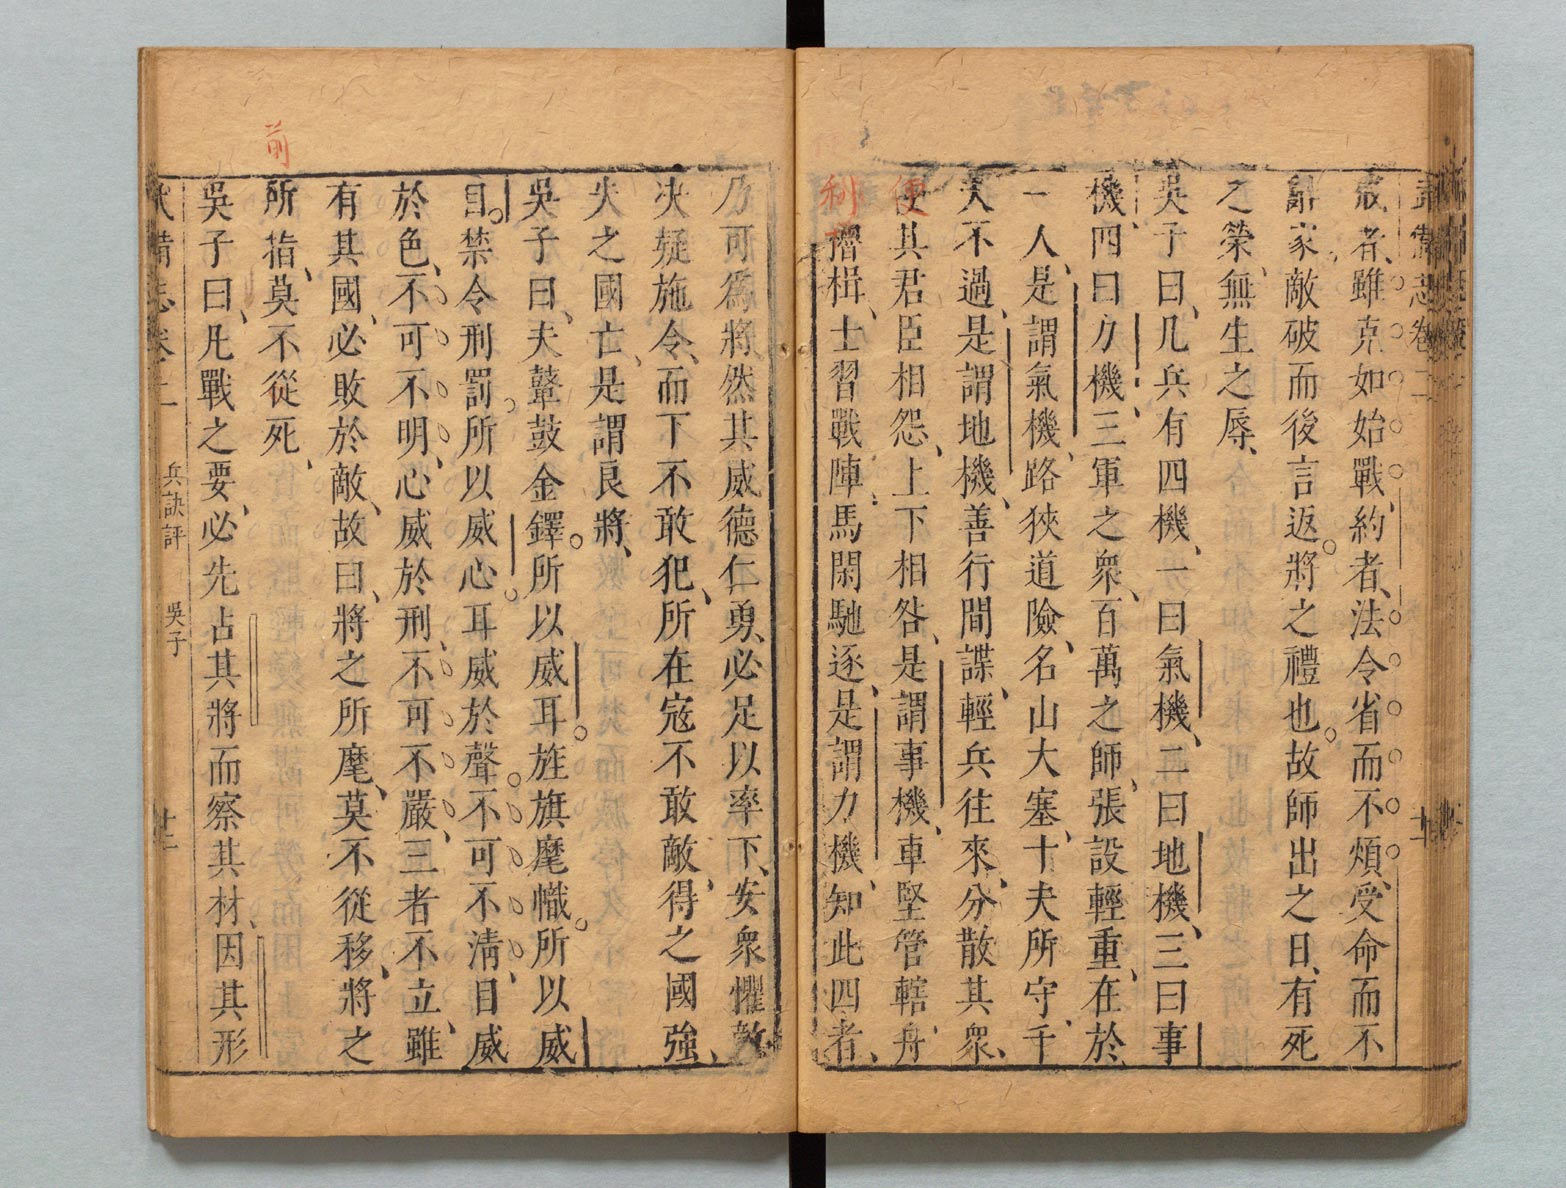 武備志卷二 十二
寇者雖克如始戰約者法令省而不煩受命而不
辭家敵破而後言返將之禮也故師出之日有死
之榮無生之辱
吳子曰凡兵有四機一曰氣機二曰地機三曰事
機四曰力機三軍之衆百萬之師張設輕重在於
一人是謂氣機路狹道險名山大塞十夫所守千
夫不過是謂地機善行間諜輕兵往來分散其衆
使其君臣相怨上下相咎是謂事機車堅管轄舟
利櫓楫士習戰陣馬閑馳逐是謂力機知此四者
乃可爲將然其威德仁勇必足以率下安衆懼敵
决疑施令而下不敢犯所在寇不敢敵得之國強
失之國亡是謂良將
吳子曰夫鼙鼓金鐸所以威耳旌旗麾幟所以威
目禁令刑罰所以威心耳威於聲不可不清目威
於色不可不明心威於刑不可不嚴三者不立雖
有其國必敗於敵故曰將之所麾莫不從移將之
所指莫不從死
前
吳子曰凡戰之要必先占其將而察其材因其形
武備志卷二 兵訣評 吳子 十二